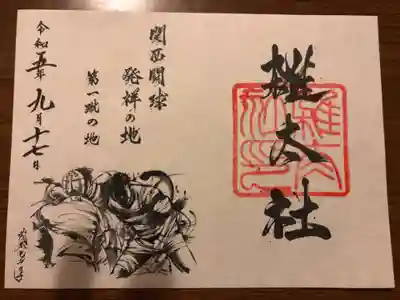 雑太社
関西闘球
発祥の地
第一蹴の地
令和五年九月十七日